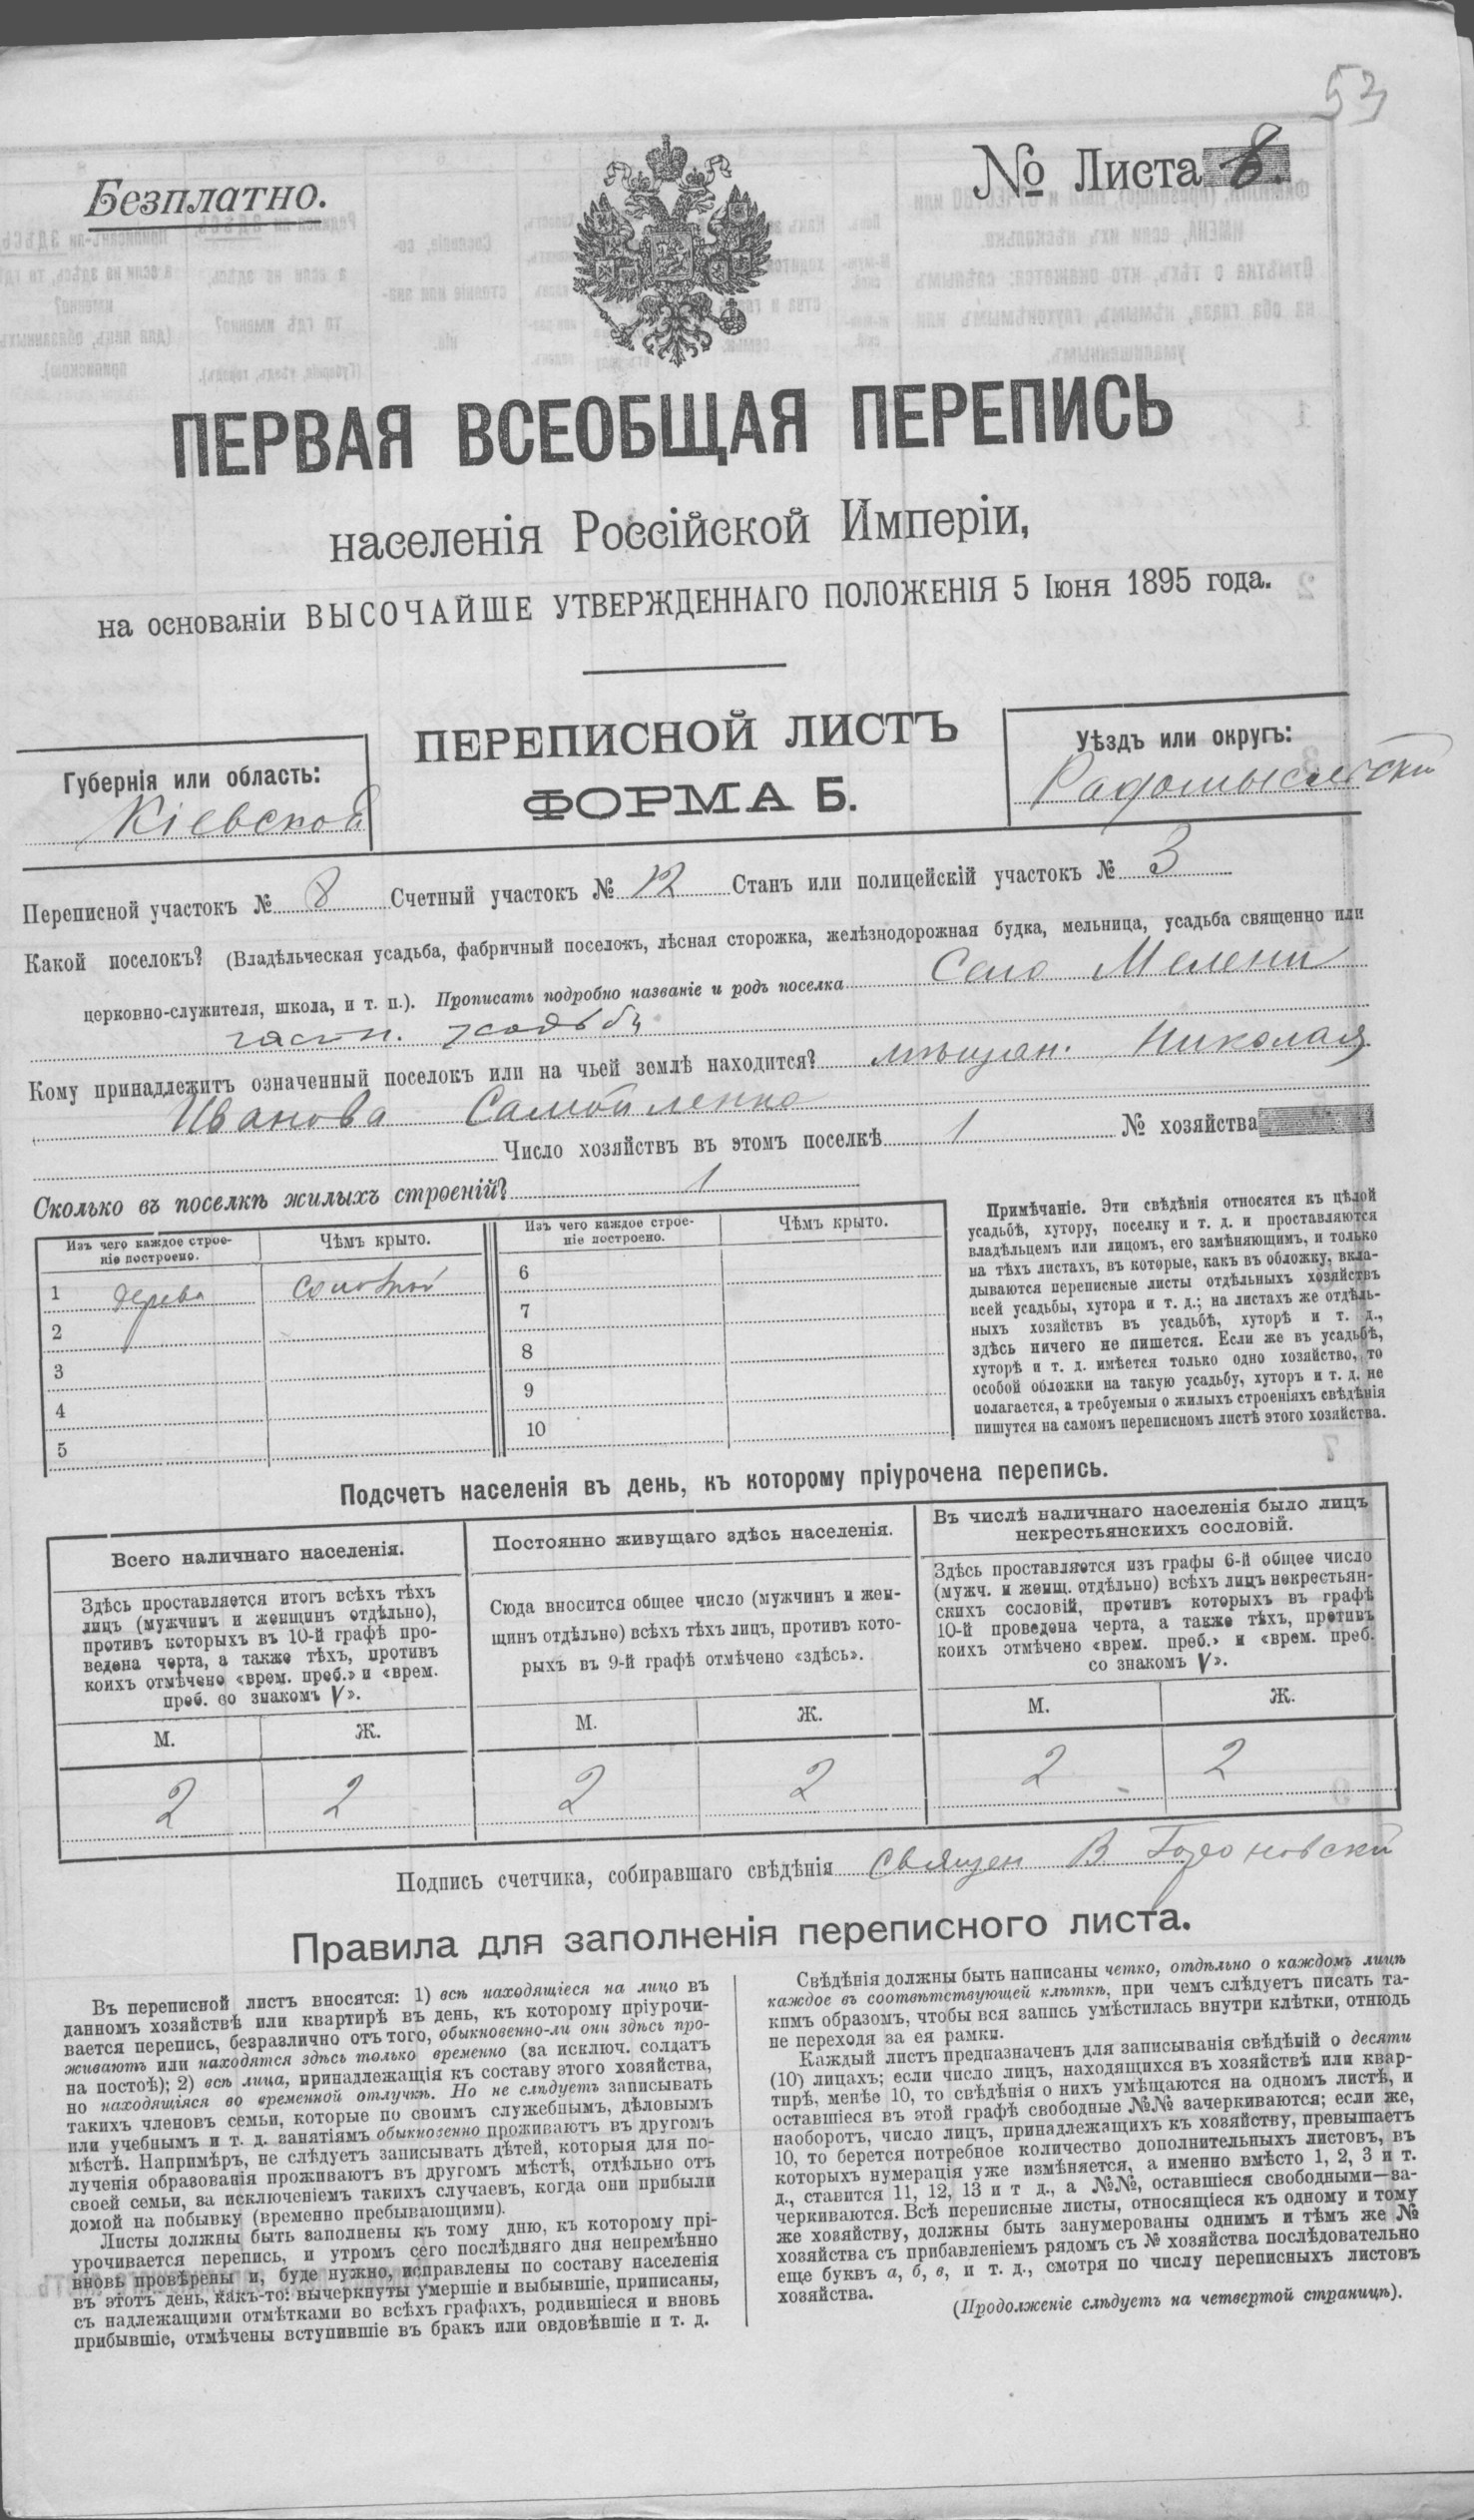 53
Безплатно.
№ Листа 8.
ПЕРВАЯ ВСЕОБЩАЯ ПЕРЕПИСЬ
населенія Россійской Имперіи,
на основаніи ВЫСОЧАЙШЕ УТВЕРЖДЕННАГО ПОЛОЖЕНІЯ 5 Іюня 1895 года.
ПЕРЕПИСНОЙ ЛИСТЪ
ФОРМА Б.
Губернія или область:
Кіевской
Уѣздъ или округъ:
Радомысльскій
Переписной участокъ № 8 Счетный участокъ № 12 Станъ или полицейскій участокъ № 3
Какой поселокъ? (Владѣльческая усадьба, фабричный поселокъ, лѣсная сторожка, желѣзнодорожная будка, мельница, усадьба священно или
церковно-служителя, школа, и т. п.). Прописать подробно названіе и родъ поселка Село Мелени
частн. усадьба
Кому принадлежитъ означенный поселокъ или на чьей землѣ находится? мѣщан. Николая
Иванова Самойленко
Число хозяйствъ въ этомъ поселкѣ 1 № хозяйства
Сколько въ поселкѣ жилыхъ строеній? 1
Изъ чего каждое строе-
ніе построено.
Чѣмъ крыто.
Изъ чего каждое строе-
ніе построено.
Чѣмъ крыто.
1 дерева соломой
2
3
4
5
6
7
8
9
10
Примѣчаніе. Эти свѣдѣнія относятся къ цѣлой
усадьбѣ, хутору, поселку и т. д. и проставляются
владѣльцемъ или лицомъ, его замѣняющимъ, и только
на тѣхъ листахъ, въ которые, какъ въ обложку, вкла-
дываются переписные листы отдѣльныхъ хозяйствъ
всей усадьбы, хутора и т. д.; на листахъ же отдѣль-
ныхъ хозяйствъ въ усадьбѣ, хуторѣ и т. д.,
здѣсь ничего не пишется. Если же въ усадьбѣ,
хуторѣ и т. д. имѣется только одно хозяйство, то
особой обложки на такую усадьбу, хуторъ и т. д. не
полагается, а требуемыя о жилыхъ строеніяхъ свѣдѣнія
пишутся на самомъ переписномъ листѣ этого хозяйства.
Подсчетъ населенія въ день, къ которому пріурочена перепись.
Всего наличнаго населенія.
Здѣсь проставляется итогъ всѣхъ тѣхъ
лицъ (мужчинъ и женщинъ отдѣльно),
противъ которыхъ въ 10-й графѣ про-
ведена черта, а также тѣхъ, противъ
коихъ отмѣчено «врем. преб.» и «врем.
преб. со знакомъ V».
М. Ж.
2 2
Постоянно живущаго здѣсь населенія.
Сюда вносится общее число (мужчинъ и жен-
щинъ отдѣльно) всѣхъ тѣхъ лицъ, противъ кото-
рыхъ въ 9-й графѣ отмѣчено «здѣсь».
М. Ж.
2 2
Въ числѣ наличнаго населенія было лицъ
некрестьянскихъ сословій.
Здѣсь проставляется изъ графы 6-й общее число
(мужч. и женщ. отдѣльно) всѣхъ лицъ некрестьян-
скихъ сословій, противъ которыхъ въ графѣ
10-й проведена черта, а также тѣхъ, противъ
коихъ отмѣчено «врем. преб.» и «врем. преб.
со знакомъ V».
М. Ж.
2 2
Подпись счетчика, собиравшаго свѣдѣнія Священ В
Правила для заполненія переписного листа.
Въ переписной листъ вносятся: 1) всѣ находящіеся на лицо въ
данномъ хозяйствѣ или квартирѣ въ день, къ которому пріурочи-
вается перепись, безразлично отъ того, обыкновенно-ли они здѣсь про-
живаютъ или находятся здѣсь только временно (за исключ. солдатъ
на постоѣ); 2) всѣ лица, принадлежащія къ составу этого хозяйства,
но находящіяся во временной отлучкѣ. Но не слѣдуетъ записывать
такихъ членовъ семьи, которые по своимъ служебнымъ, дѣловымъ
или учебнымъ и т. д. занятіямъ обыкновенно проживаютъ въ другомъ
мѣстѣ. Напримѣръ, не слѣдуетъ записывать дѣтей, которыя для по-
лученія образованія проживаютъ въ другомъ мѣстѣ, отдѣльно отъ
своей семьи, за исключеніемъ такихъ случаевъ, когда они прибыли
домой на побывку (временно пребывающими).
Листы должны быть заполнены къ тому дню, къ которому прі-
урочивается перепись, и утромъ сего послѣдняго дня непремѣнно
вновь провѣрены и, буде нужно, исправлены по составу населенія
въ этотъ день, какъ-то: вычеркнуты умершіе и выбывшіе, приписаны,
съ надлежащими отмѣтками во всѣхъ графахъ, родившіеся и вновь
прибывшіе, отмѣчены вступившіе въ бракъ или овдовѣвшіе и т. д.
Свѣдѣнія должны быть написаны четко, отдѣльно о каждомъ лицѣ
каждое въ соотвѣтствующей клѣткѣ, при чемъ слѣдуетъ писать та-
кимъ образомъ, чтобы вся запись умѣстилась внутри клѣтки, отнюдь
не переходя за ея рамки.
Каждый листъ предназначенъ для записыванія свѣдѣній о десяти
(10) лицахъ; если число лицъ, находящихся въ хозяйствѣ или квар-
тирѣ, менѣе 10, то свѣдѣнія о нихъ умѣщаются на одномъ листѣ, и
оставшіеся въ этой графѣ свободные №№ зачеркиваются; если же,
наоборотъ, число лицъ, принадлежащихъ къ хозяйству, превышаетъ
10, то берется потребное количество дополнительныхъ листовъ, въ
которыхъ нумерація уже измѣняется, а именно вмѣсто 1, 2, 3 и т.
д., ставится 11, 12, 13 и т д., а №№, оставшіеся свободными—за-
черкиваются. Всѣ переписные листы, относящіеся къ одному и тому
же хозяйству, должны быть занумерованы однимъ и тѣмъ же №
хозяйства съ прибавленіемъ рядомъ съ № хозяйства послѣдовательно
еще буквъ а, б, в, и т. д., смотря по числу переписныхъ листовъ
хозяйства.
(Продолженіе слѣдуетъ на четвертой страницѣ).